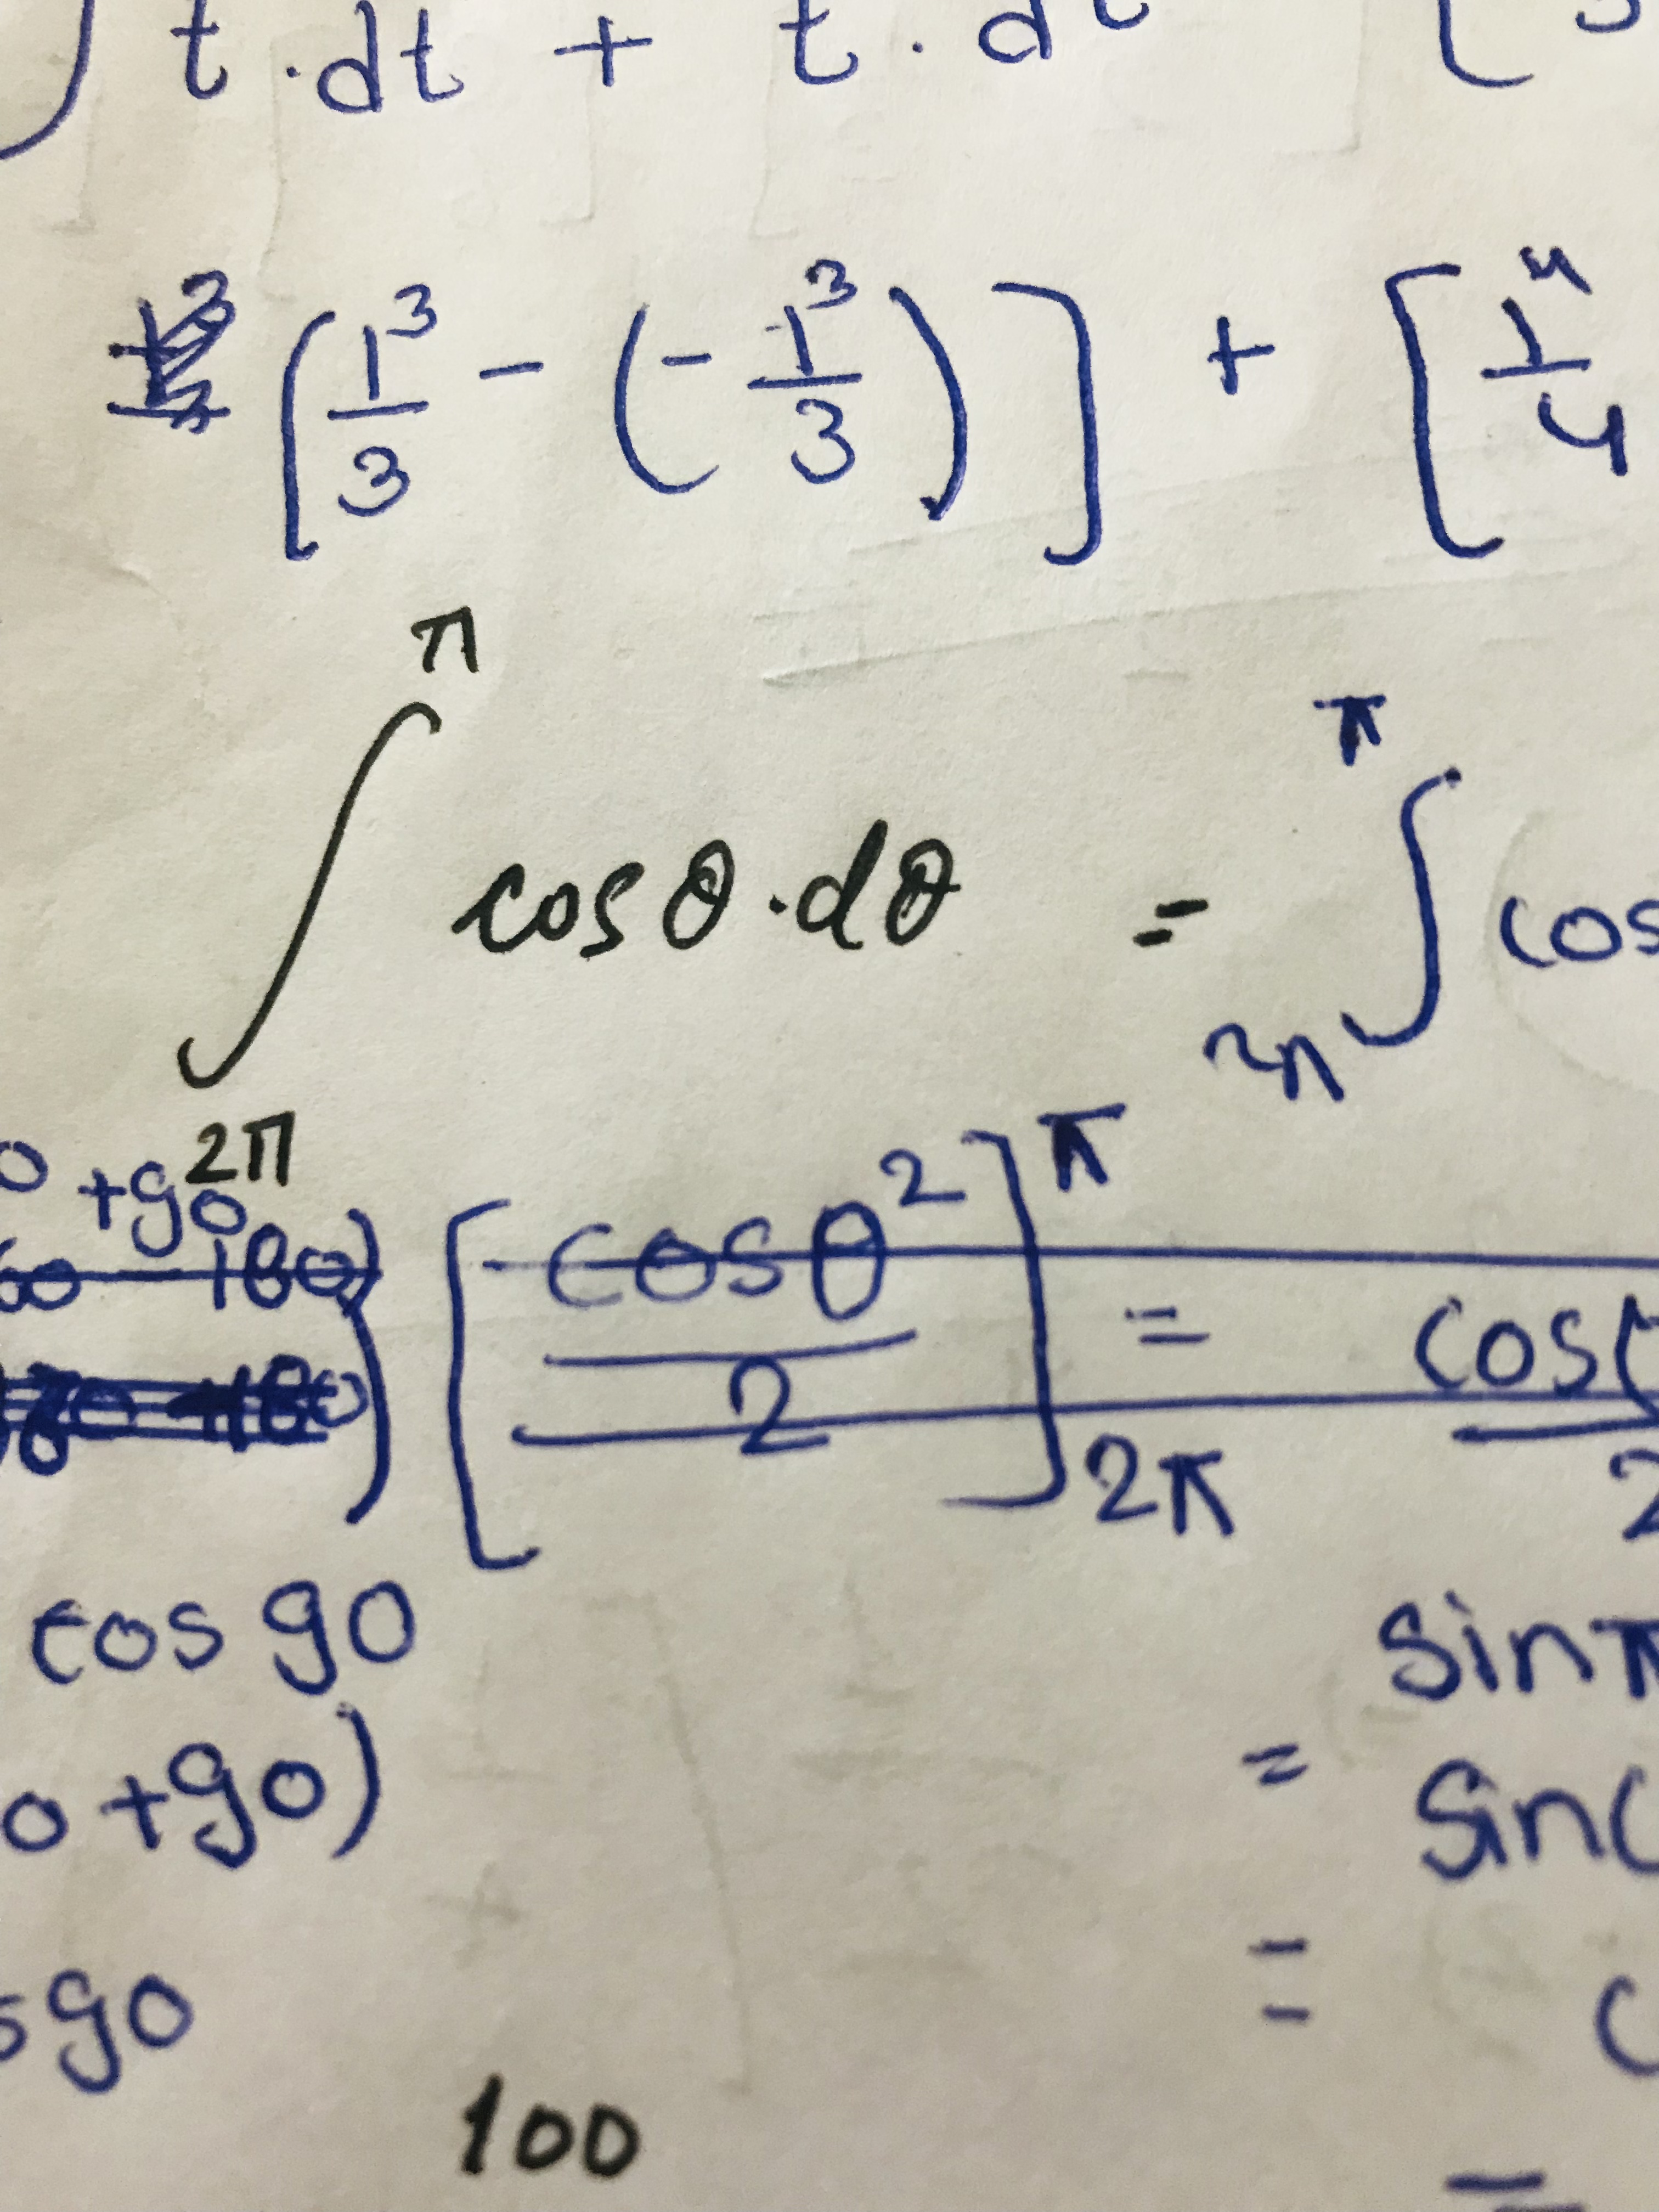 ∫ t · dt + t · dt [
[1³/3 - (-1³/3)] + [1⁴/4
∫ 2π π cosθ · dθ = ∫ 2π π cos
+90
180)
[cosθ²/2] 2π π = cos( / 2
cos 90 sin π
0 +90) = sin(
90 =
100